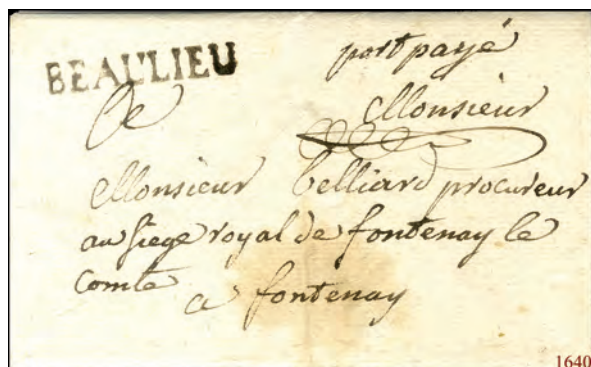 BEAULIEU
port payé
A
Monsieur
Monsieur Belliard procureur
au siege royal de fontenay le
comte
a fontenay
1640